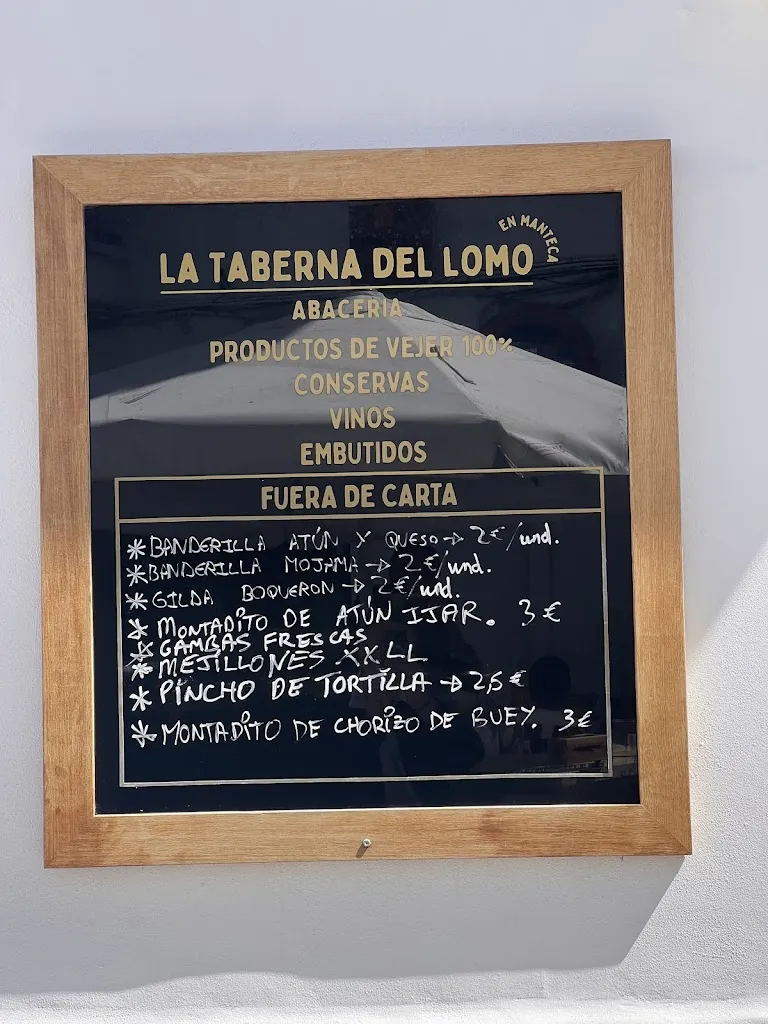 EN MANTECA
LA TABERNA DEL LOMO
ABACERIA
PRODUCTOS DE VEJER 100%
CONSERVAS
VINOS
EMBUTIDOS
FUERA DE CARTA
* BANDERILLA ATÚN Y QUESO → 2€/und.
* BANDERILLA MOJAMA → 2€/und.
* GILDA BOQUERON → 2€/und.
* MONTADITO DE ATÚN IJAR. 3€
* GAMBAS FRESCAS
* MEJILLONES XXLL
* PINCHO DE TORTILLA → 2,5€
* MONTADITO DE CHORIZO DE BUEY. 3€